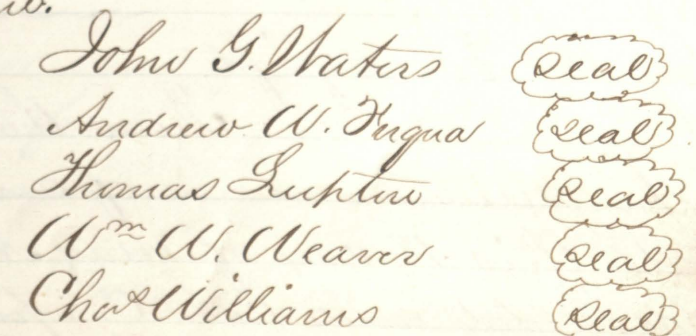 John G. Waters seal
Andrew W. Fuqua seal
Thomas Lupton seal
Wm W. Weaver seal
Chas Williams seal